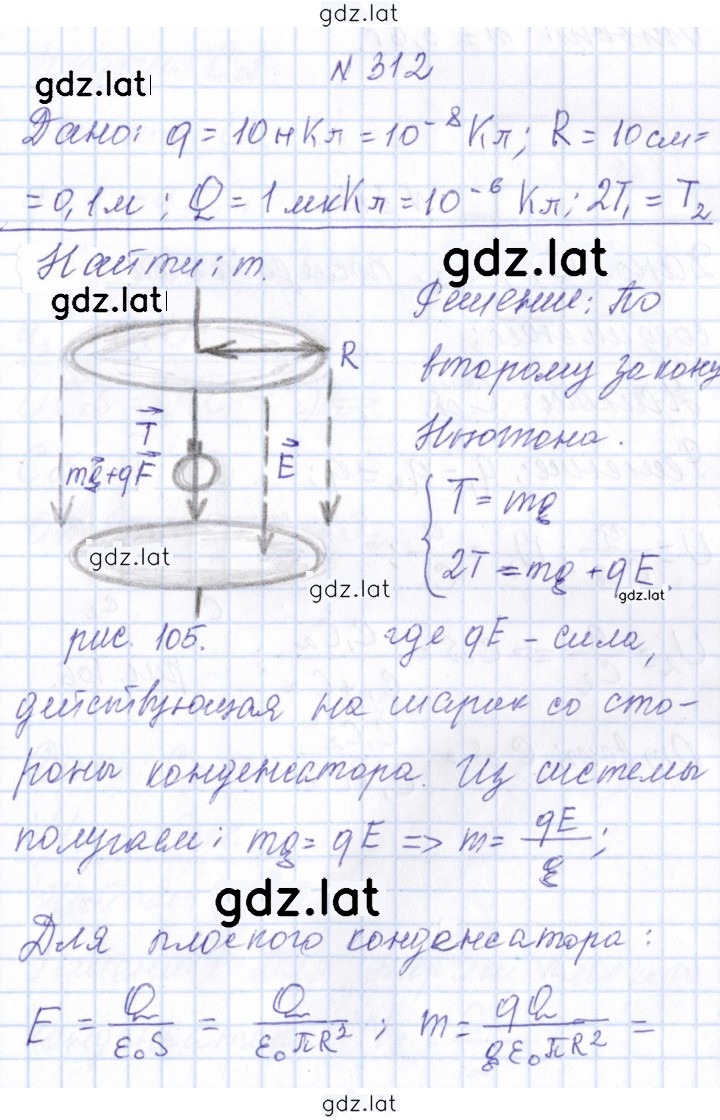 gdz.lat
№ 312
gdz.lat
Дано: q = 10нКл = 10⁻⁸Кл; R = 10см=
= 0,1м; Q = 1мкКл = 10⁻⁶ Кл; 2T₁ = T₂
Найти: m.
gdz.lat
gdz.lat
Решение: По
второму закону
Ньютона.
R
T
mg+qE
E
T = mg
2T = mg + qE,
gdz.lat
gdz.lat
gdz.lat
рис. 105.
где qE - сила,
действующая на шарик со сто-
роны конденсатора. Из системы
получаем: mg = qE => m = qE/g;
gdz.lat
Для плоского конденсатора:
E = Q/ε₀S = Q/ε₀πR²; m = qQ/gε₀πR² =
gdz.lat